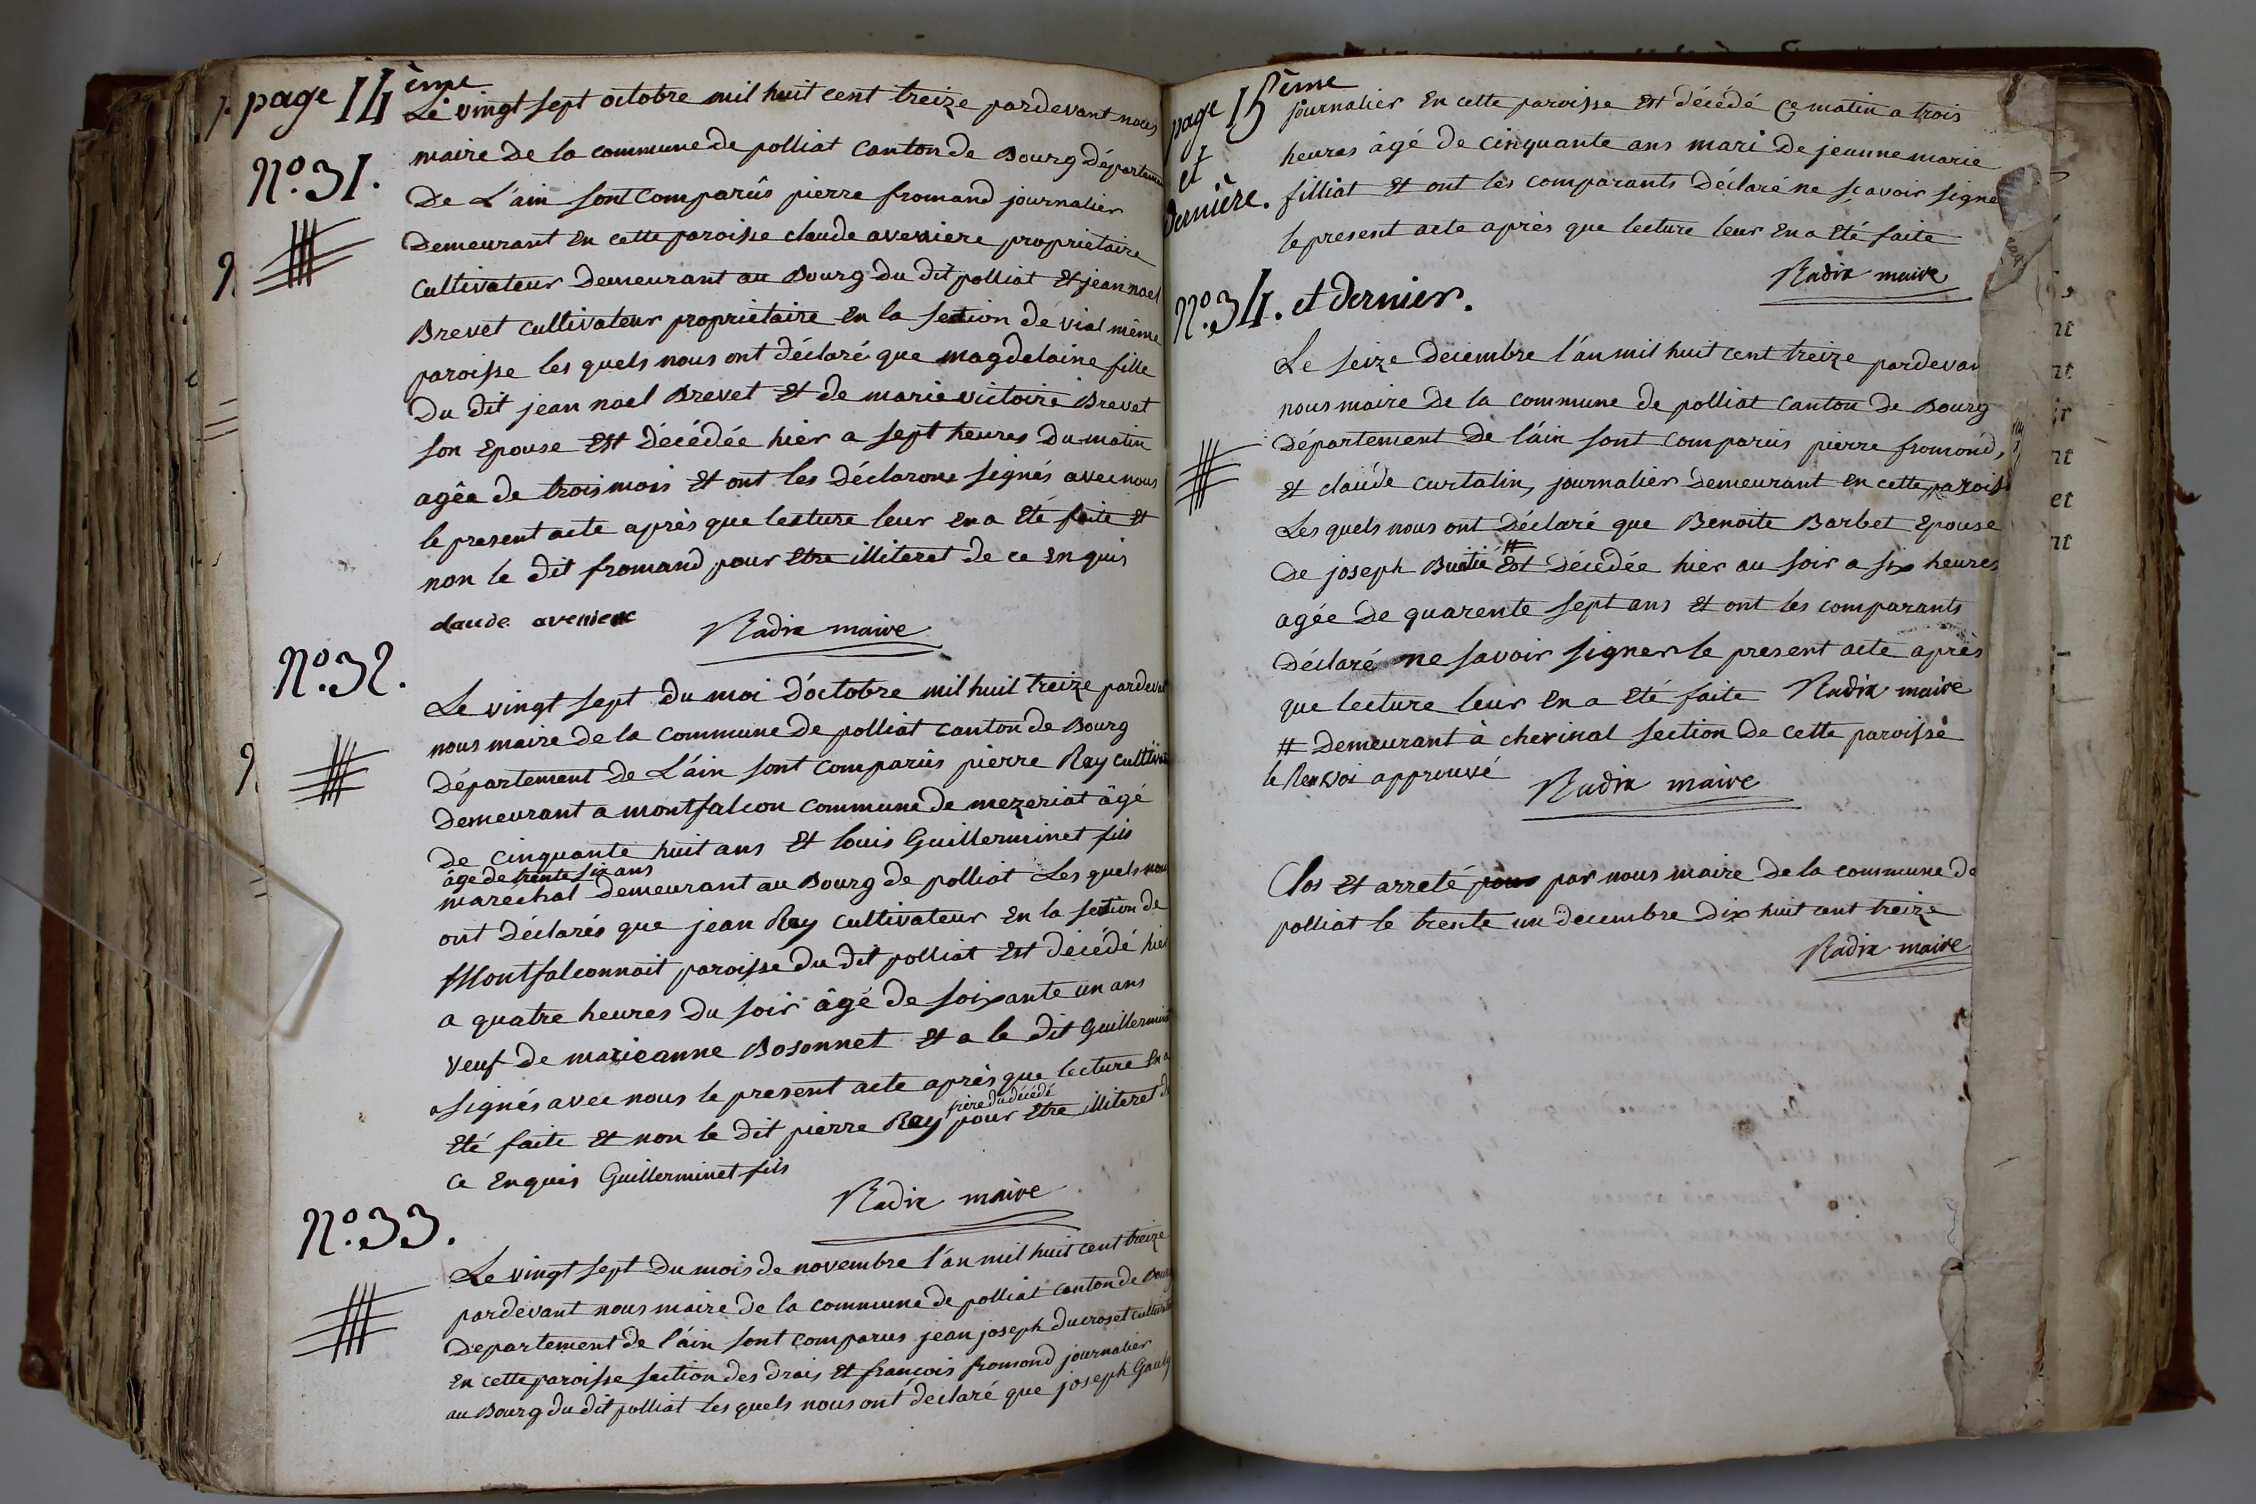 page 14 ème
Le vingt sept octobre mil huit cent treize pardevant nous
N.° 31.
maire de la commune de polliat canton de Bourg départemen
De L'ain sont comparûs pierre fromand journalier
Demeurant en cette paroisse claude aveniere proprietaire
cultivateur Demeurant au Bourg du dit polliat et jean noel
Brevet cultivateur proprietaire en la section de vial même
paroisse les quels nous ont déclaré que magdelaine fille
du dit jean noel Brevet et de marie victoire Brevet
son epouse est décédée hier a sept heures du matin
agée de trois mois et ont les déclarons signés avec nous
le present acte après que lecture leur en a eté faite et
non le dit fromand pour etre illiteret de ce enquis
claude aveniere Radix maire
N.° 32.
Le vingt sept du moi d'octobre mil huit treize pardevat
nous maire de la commune de polliat canton de Bourg
Département de L'ain sont comparûs pierre Rey cultiva
Demeurant a montfalcon commune de mezeriat âgé
De cinquante huit ans et louis Guillerminet fils
âge de trente six ans
marechal demeurant au Bourg de polliat Les quels nous
ont déclarés que jean Rey cultivateur en la section de
Montfalconnait paroisse du dit polliat est décédé hier
a quatre heures du soir âgé de soixante un ans
veuf de marieanne Bosonnet et a le dit Guillermin
signés avec nous le present acte après que lecture en a
frère du décédé
eté faite et non le dit pierre Rey pour etre illiteret de
ce enquis Guillerminet fils
Radix maire
N.° 33.
Le vingt sept du mois de novembre l'an mil huit cent treize
pardevant nous maire de la commune de polliat canton de Bourg
Departement de l'ain sont comparus jean joseph ducroset cultivat
en cette paroisse section des drais et francois fromond journalier
au Bourg du dit polliat les quels nous ont declaré que joseph Gauly
page 15 ème
et
dernière.
journalier en cette paroisse est décédé ce matin a trois
heures âgé de cinquante ans mari de jeanne marie
filliat et ont les comparants déclaré ne sçavoir signe
le present acte après que lecture leur en a eté faite
Radix maire
N.° 34. et dernier.
Le seize decembre l'an mil huit cent treize pardevan
nous maire de la commune de polliat canton de Bourg
Département de l'ain sont comparûs pierre fromond,
et claude curtalin, journalier demeurant en cette paroiss
Les quels nous ont déclaré que Benoite Barbet epouse
#
De joseph Buatié est décédée hier au soir a six heures
agée de quarente sept ans et ont les comparants
déclaré ne savoir signer le present acte après
que lecture leur en a eté faite Radix maire
# Demeurant à cherinal section de cette paroisse
le Renvoi approuvé Radix maire
Clos et arreté pour par nous maire de la commune de
polliat le trente un decembre dix huit cent treize
Radix maire